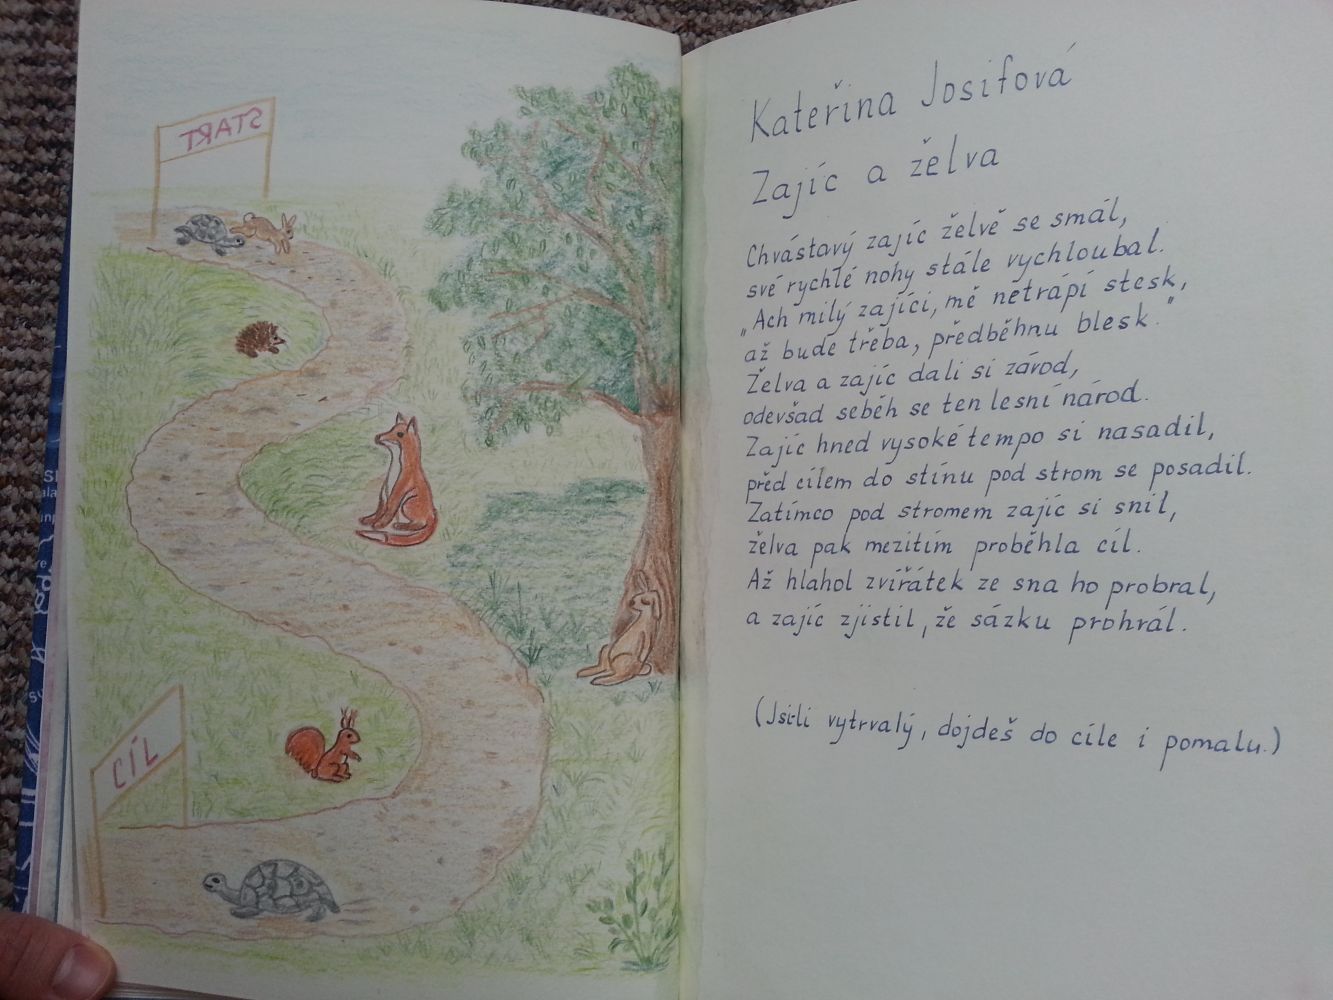 START
CÍL
Kateřina Josifová
Zajíc a želva
Chvástavý zajíc želvě se smál,
své rychlé nohy stále vychloubal.
„Ach milý zajíci, mě netrápí stesk,
až bude třeba, předběhnu blesk."
Želva a zajíc dali si závod,
odevšad seběh se ten lesní národ.
Zajíc hned vysoké tempo si nasadil,
před cílem do stínu pod strom se posadil.
Zatímco pod stromem zajíc si snil,
želva pak mezitím proběhla cíl.
Až hlahol zvířátek ze sna ho probral,
a zajíc zjistil, že sázku prohrál.
(Jsi-li vytrvalý, dojdeš do cíle i pomalu.)